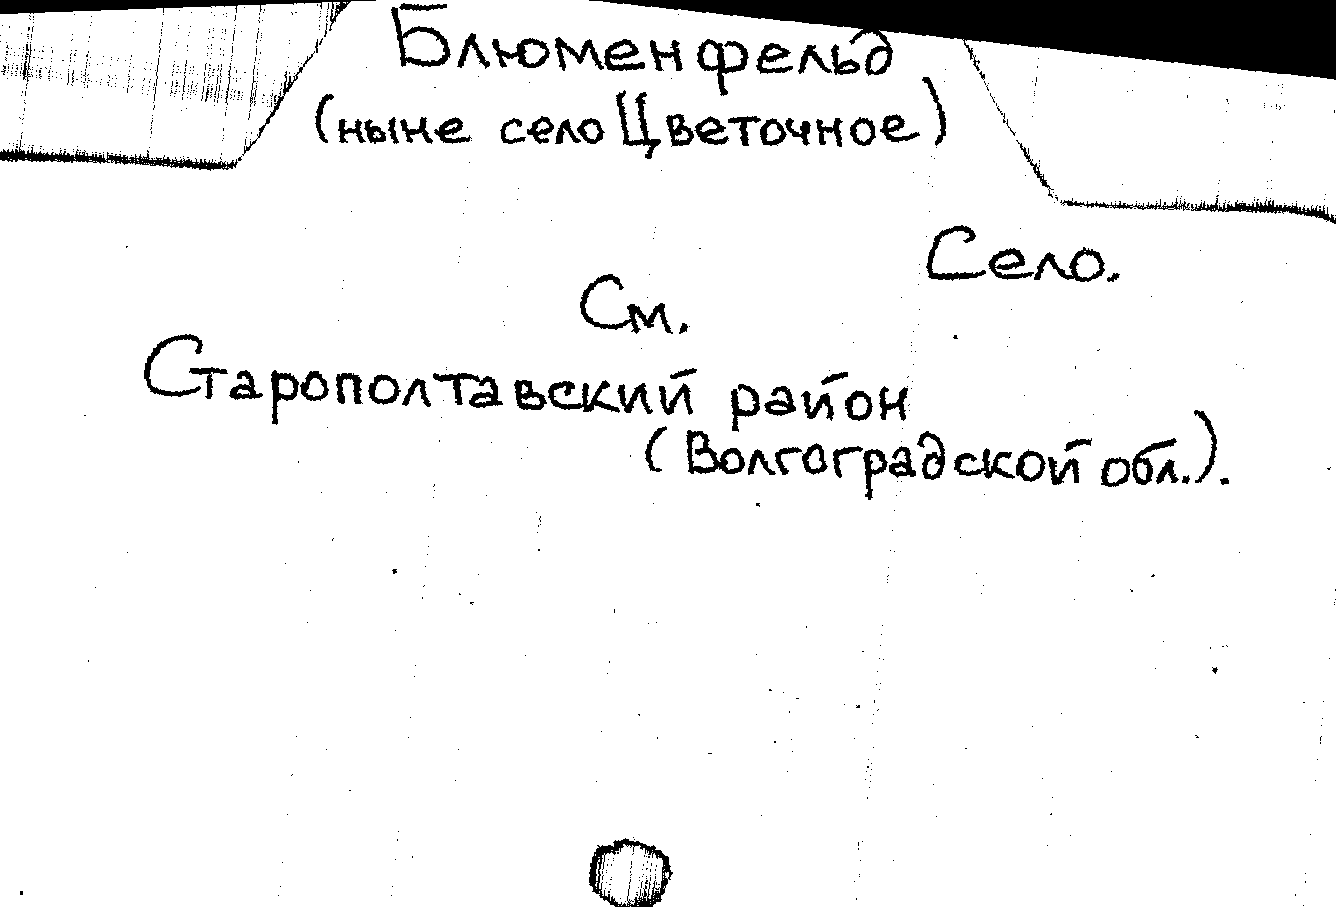 Блюменфельд
(ныне село Цветочное)
Село.
См.
Старополтавский район
(Волгоградской обл.).